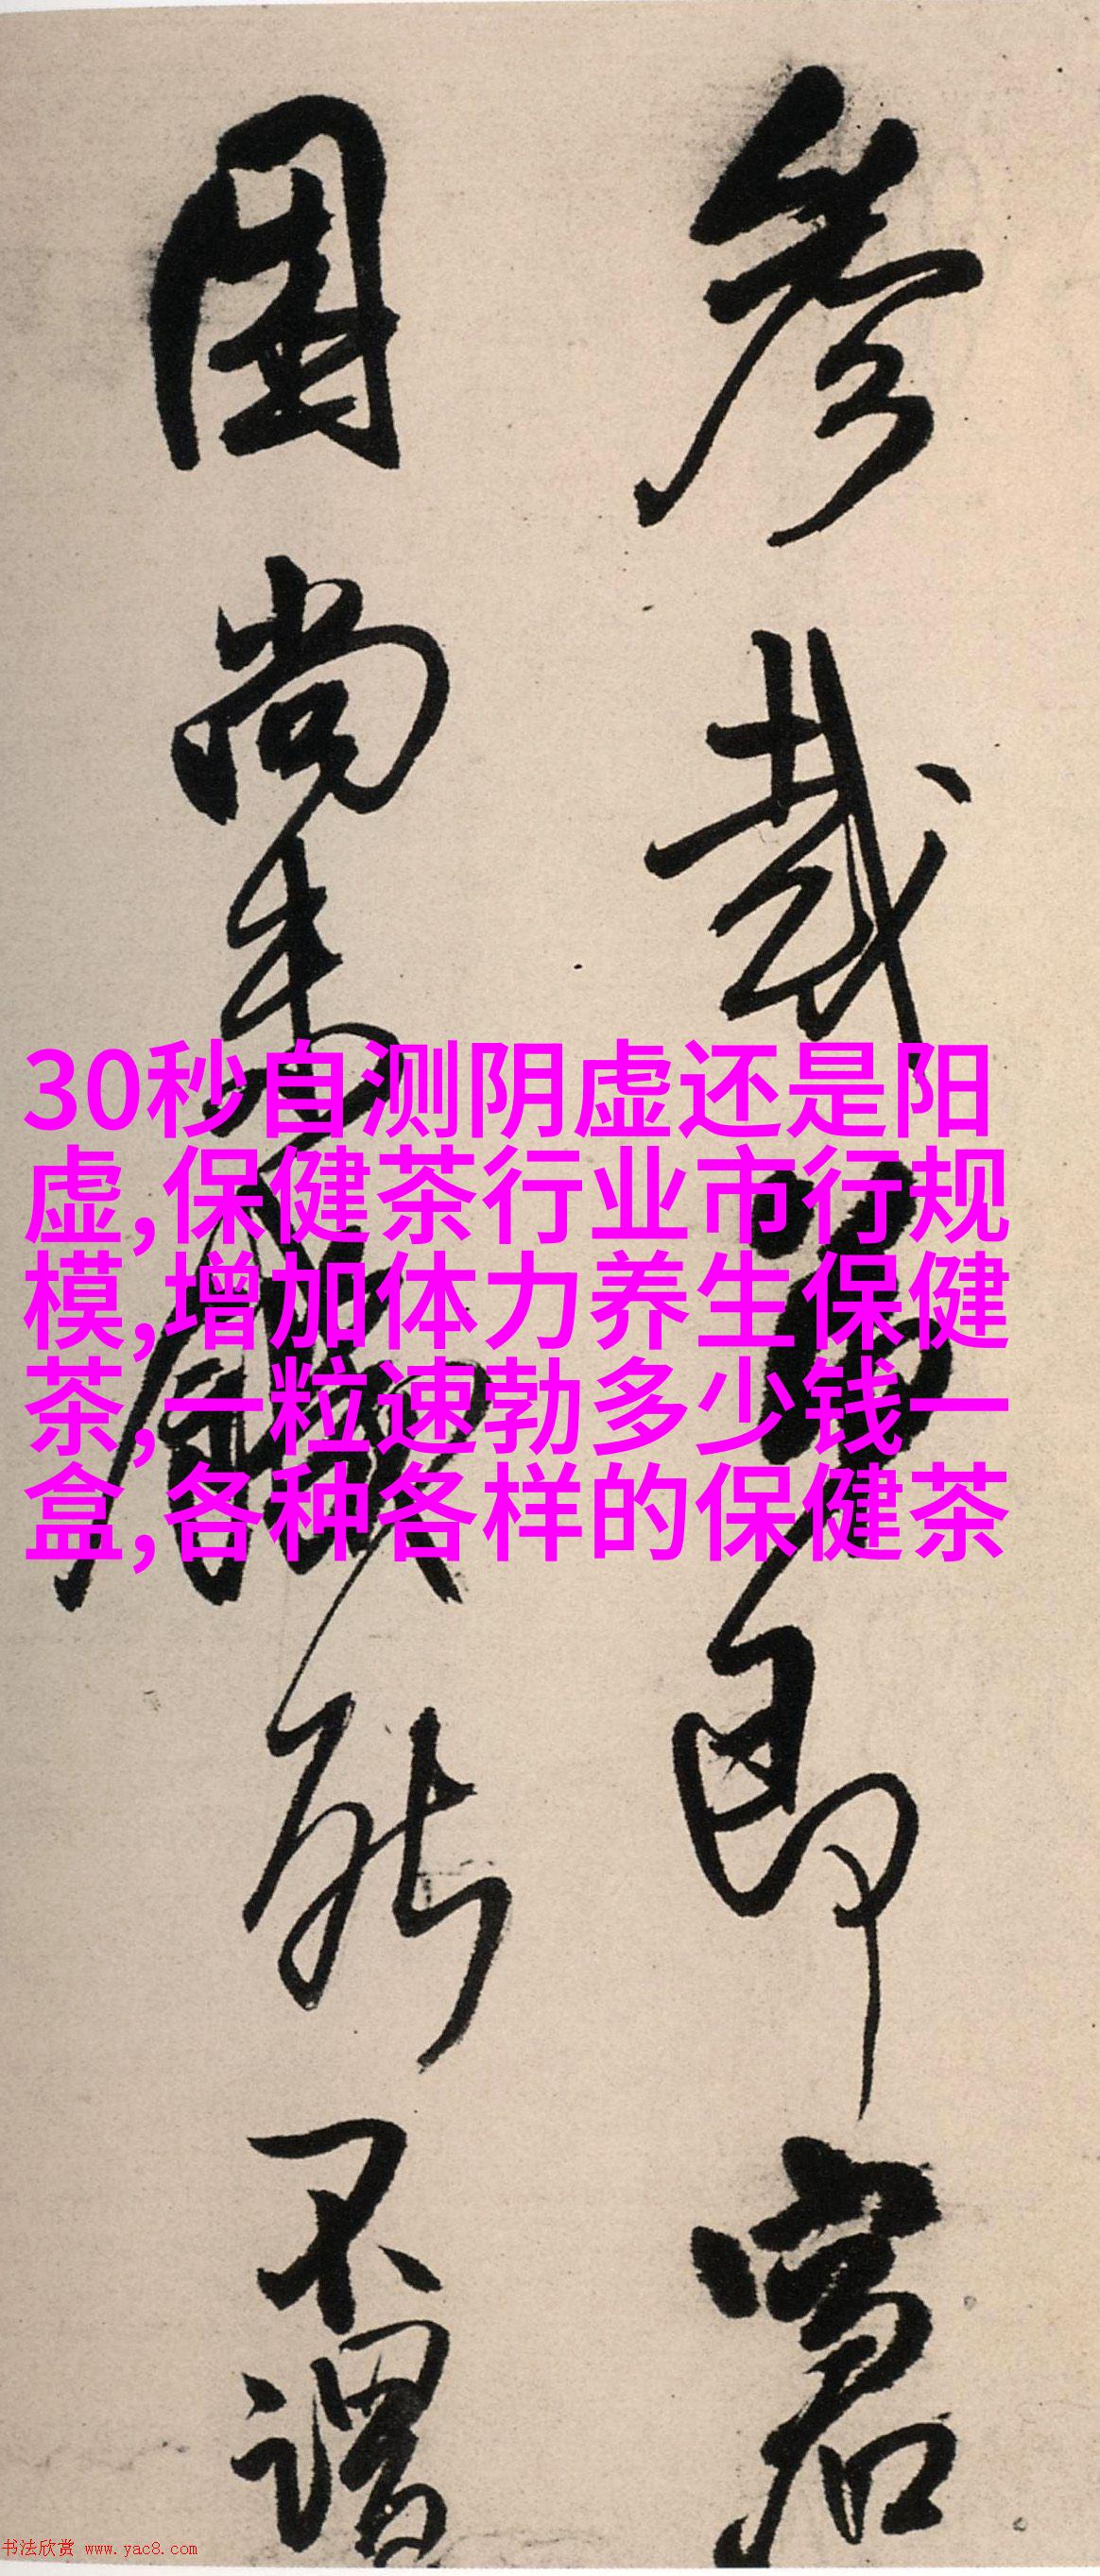 30秒自测阴虚还是阳
虚,保健茶行业市行规
模,增加体力养生保健
茶,一粒速勃多少钱一
盒,各种各样的保健茶
參哉即
尚未能不謂
书法欣赏 www.yac8.com